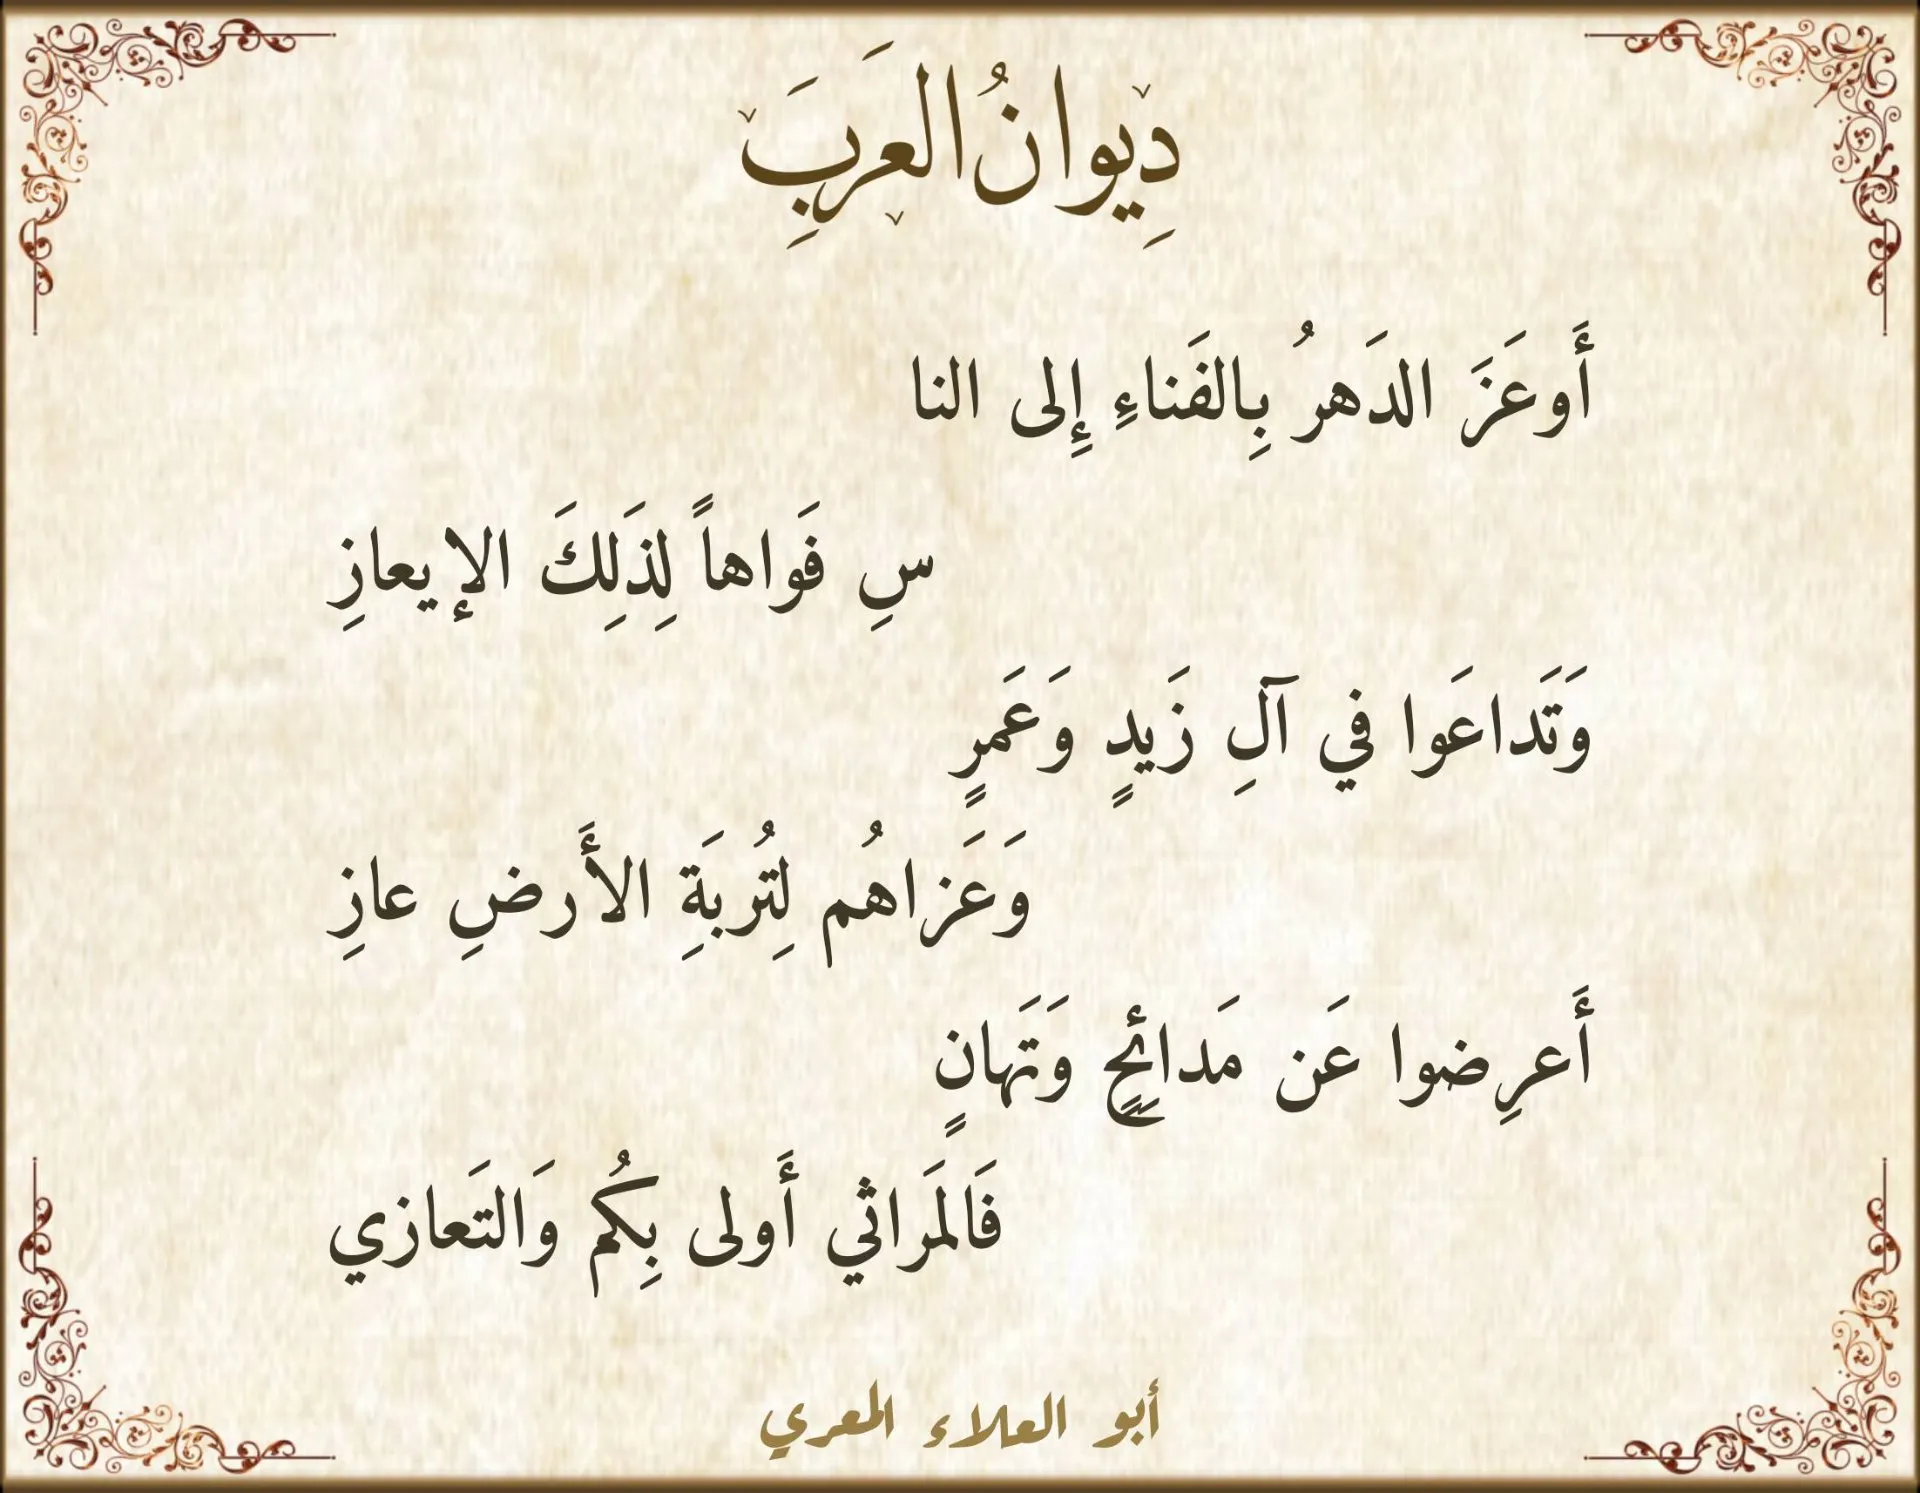 دِيوانُ العَرَبِ
أَوعَزَ الدَهرُ بِالفَناءِ إِلى النا
سِ فَواهاً لِذَلِكَ الإيعازِ
وَتَداعَوا في آلِ زَيدٍ وَعَمرٍ
وَعَزاهُم لِتُربَةِ الأَرضِ عازِ
أَعرِضوا عَن مَدائِحٍ وَتَهانٍ
فَالمَراثي أَولى بِكُم وَالتَعازي
أبو العلاء المعري